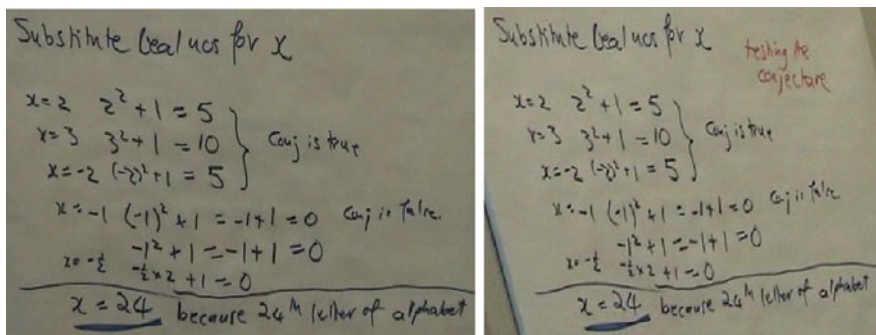 Substitute values for x
x=2 2² + 1 = 5
x=3 3² + 1 = 10
x=-2 (-2)² + 1 = 5
Conj is true
x=-1 (-1)² + 1 = -1+1=0 Conj is false.
-1² + 1 = -1+1=0
x=-½ -½×2 +1=0
x=24 because 24th letter of alphabet
Substitute values for x
testing the
conjecture
x=2 2² + 1 = 5
x=3 3² + 1 = 10
x=-2 (-2)² + 1 = 5
Conj is true
x=-1 (-1)² + 1 = -1+1=0 Conj is false.
-1² + 1 = -1+1=0
x=-½ -½×2 +1=0
x=24 because 24th letter of alphabet